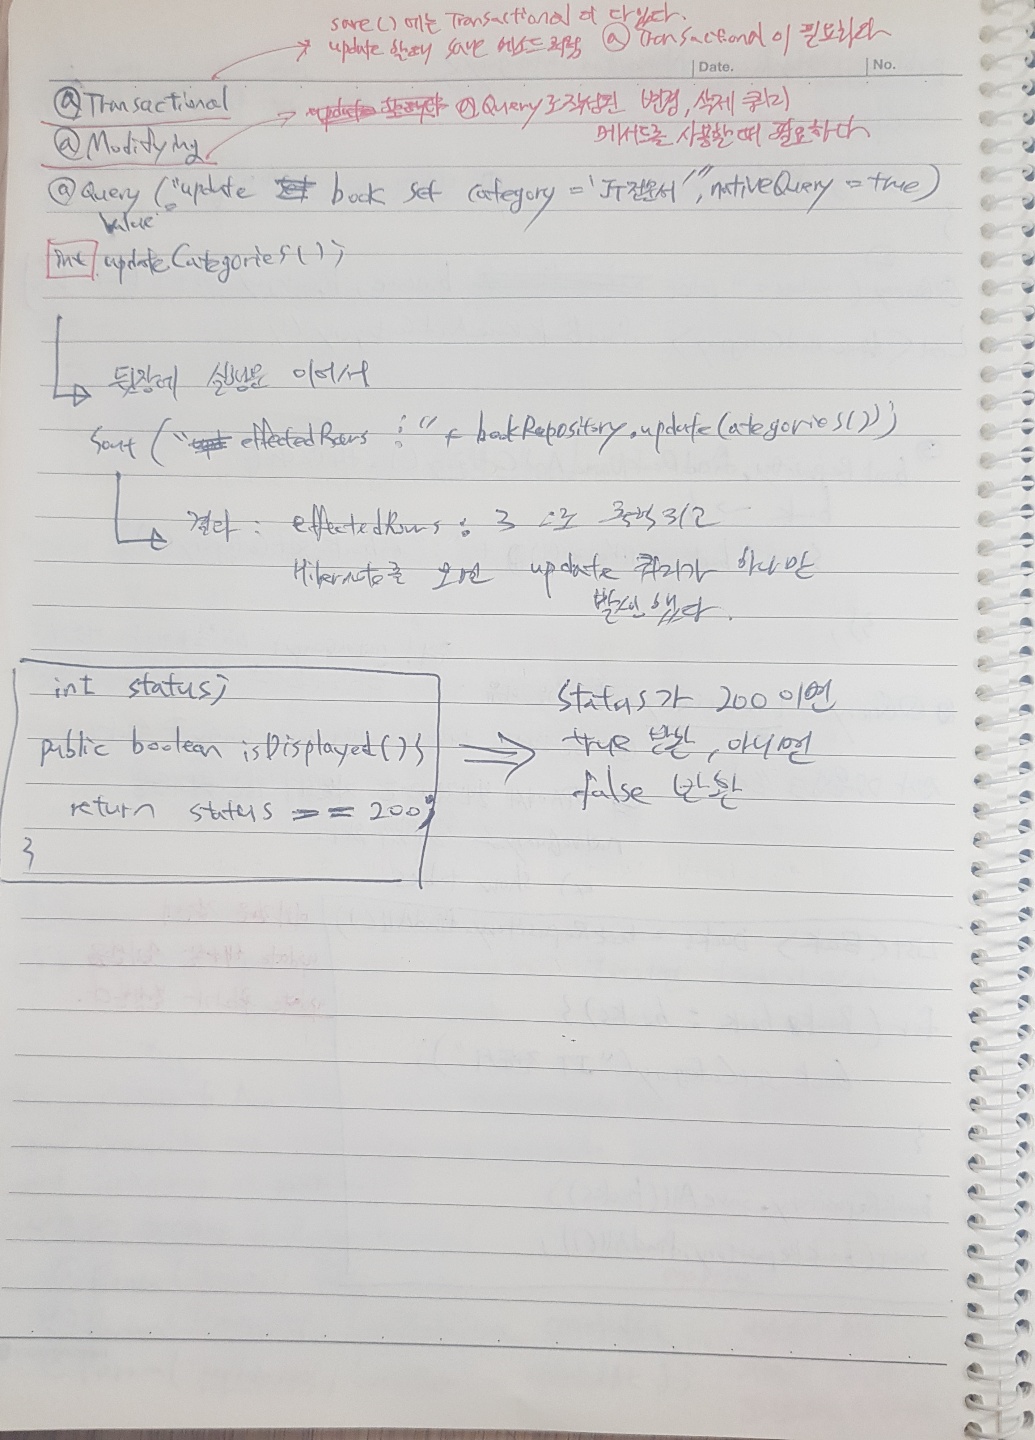 save()에는 Transactional이 다있다.
update 할때 save 메소드처럼 @Transactional이 필요하다
Date.
No.
@Transactional
@Query로 작성된 변경, 삭제 쿼리
메서드를 사용할때 필요하다
@Modifying
@Query("update book set category = 'IT전문서'", nativeQuery = true)
value
int updateCategories();
뒷장에 실행문 이어서
Sout("effectedRows : " + bookRepository.updateCategories())
결과 : effectedRows : 3 으로 출력되고
Hibernate를 보면 update 쿼리가 하나만
발생했다.
int status;
public boolean isDisplayed(){
return status == 200;
}
status가 200이면
true 반환, 아니면
false 반환